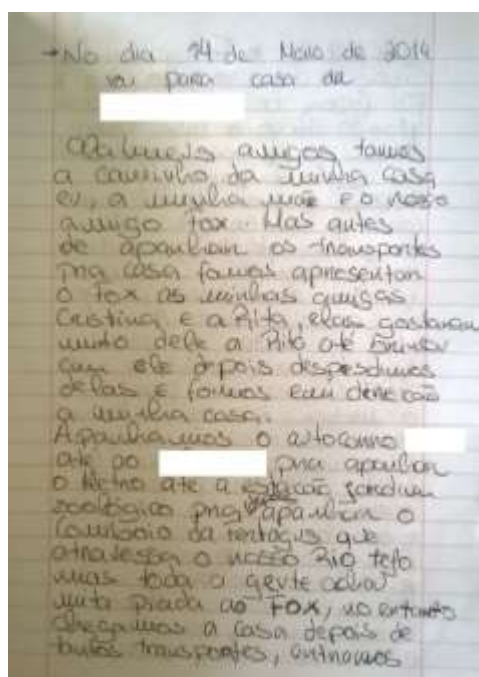 →No dia 24 de Maio de 2014
vai para casa da
Olá meus amigos tamos
a caminho da minha casa
eu, a minha mãe e o nosso
amigo fox. Mas antes
de apanhar os transportes
pra casa fomos apresentar
o fox as minhas amigas
Cristina e a Rita, elas gostaram
muito dele a Rita até brincou
com ele depois despedimos
delas e fomos em direcção
a minha casa.
Apanhamos o autocarro
até ao pra apanhar
o Metro até a estação jardim
zoológico pra apanhar o
Comboio da fertagus que
atravessa o nosso Rio tejo
mas toda a gente achou
muita piada ao FOX, no entanto
chegamos a casa depois de
tantos transportes, entramos